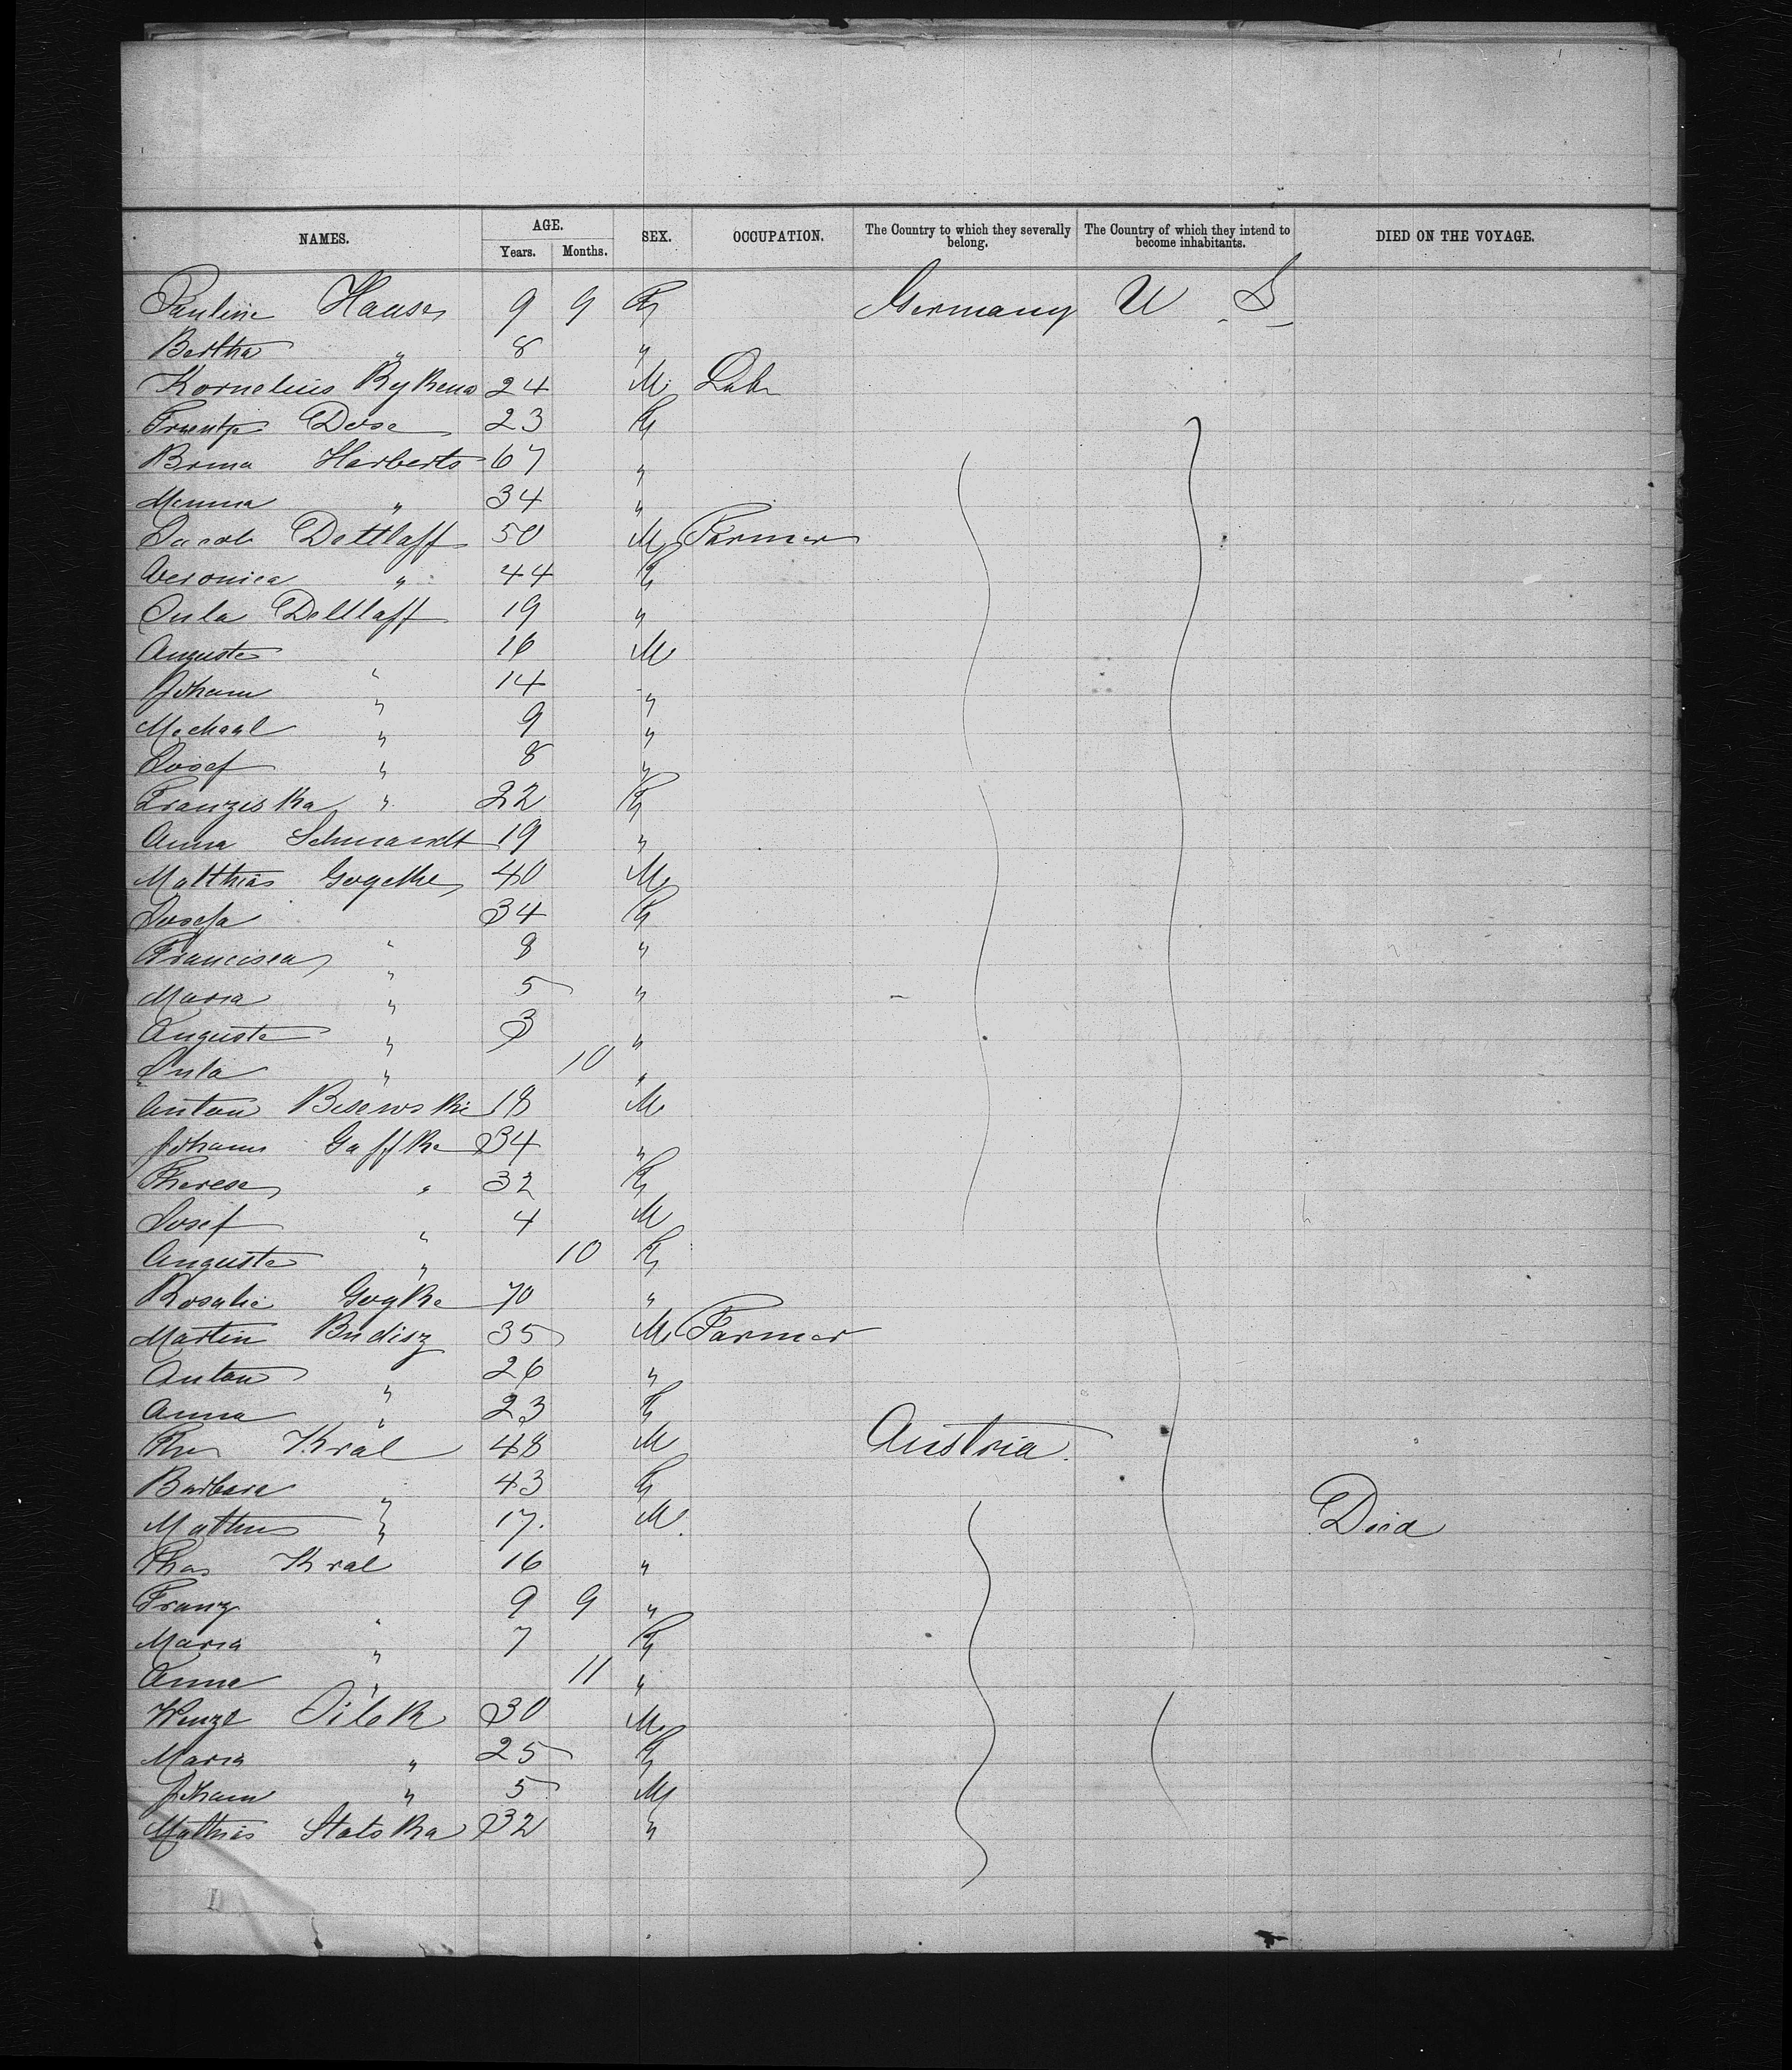 NAMES. AGE. SEX. OCCUPATION. The Country to which they severally belong. The Country of which they intend to become inhabitants. DIED ON THE VOYAGE.
Years. Months.
Pauline Hauser 9 9 F Germany U S
Bertha " 8 "
Kornelius Rykena 24 M Lab
Dose 23 F
Harberts 67 "
" 34 "
Jacob Dettlaff 50 M Farmer
Veronica " 44 F
Jula Dettlaff 19 "
Auguste " 16 M
Johann " 14 "
Michael " 9 "
Josef " 8 "
Franziska " 22 F
Anna Schmandt 19 "
Matthias 40 M
Josefa " 34 F
Francisca " 8 "
Maria " 5 "
Auguste " 3 "
Jula " 10 "
Anton Bisewski 18 M
Johann Gaffke 34 "
Therese " 32 F
Josef " 4 M
Auguste " 10 F
Rosalie Goyke 70 "
Martin Budisz 35 M Farmer
Anton " 26 "
Anna " 23 F
Kral 48 M Austria
Barbara " 43 F
" 17 M Died
Kral 16 "
Franz " 9 9 "
Maria " 7 F
Anna " 11 "
Wenzl 30 M
Maria " 25 F
Johann " 5 M
Mathias Statska 32 "